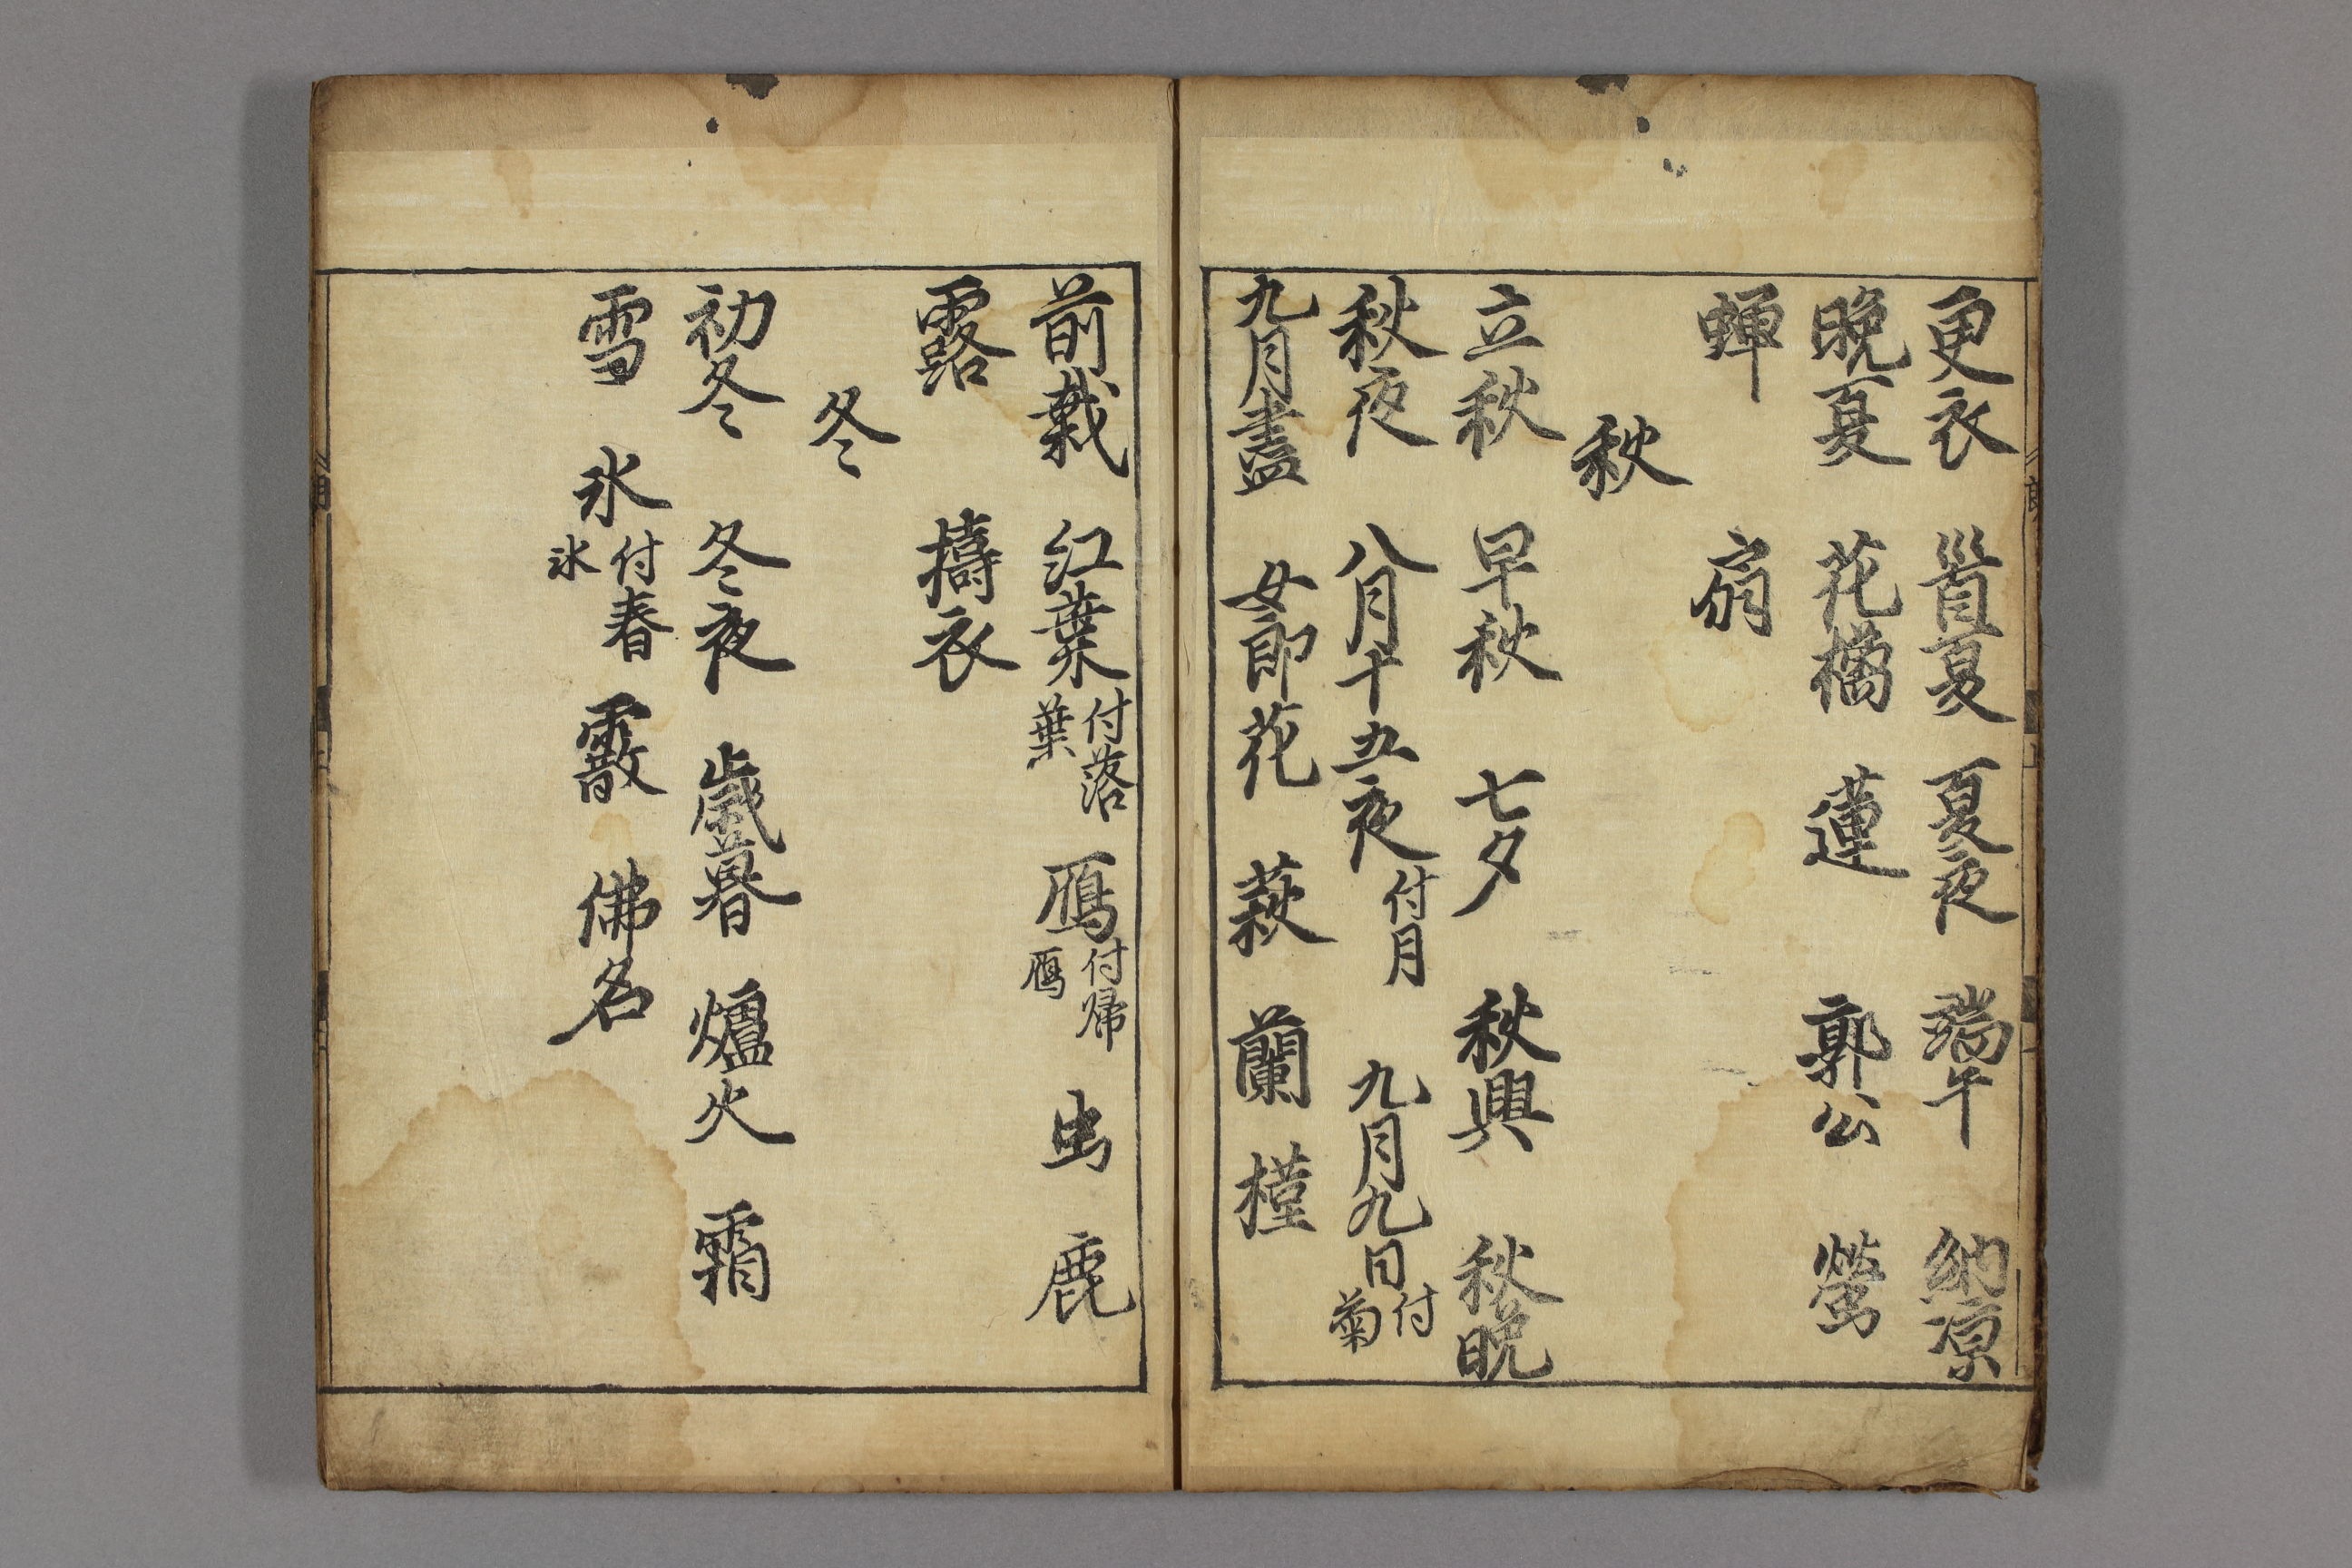 更衣 首夏 夏夜 端午 納凉
晩夏 花橘 蓮 郭公 螢
蝉 扇
秋
立秋 早秋 七夕 秋興 秋晩
秋夜 八月十五夜付月 九月九日付菊
九月盡 女郎花 萩 蘭 槿
前栽 紅葉付落葉 鴈付帰鴈 虫 鹿
露 擣衣
冬
初冬 冬夜 歳暮 爐火 霜
雪 氷付春氷 霰 佛名